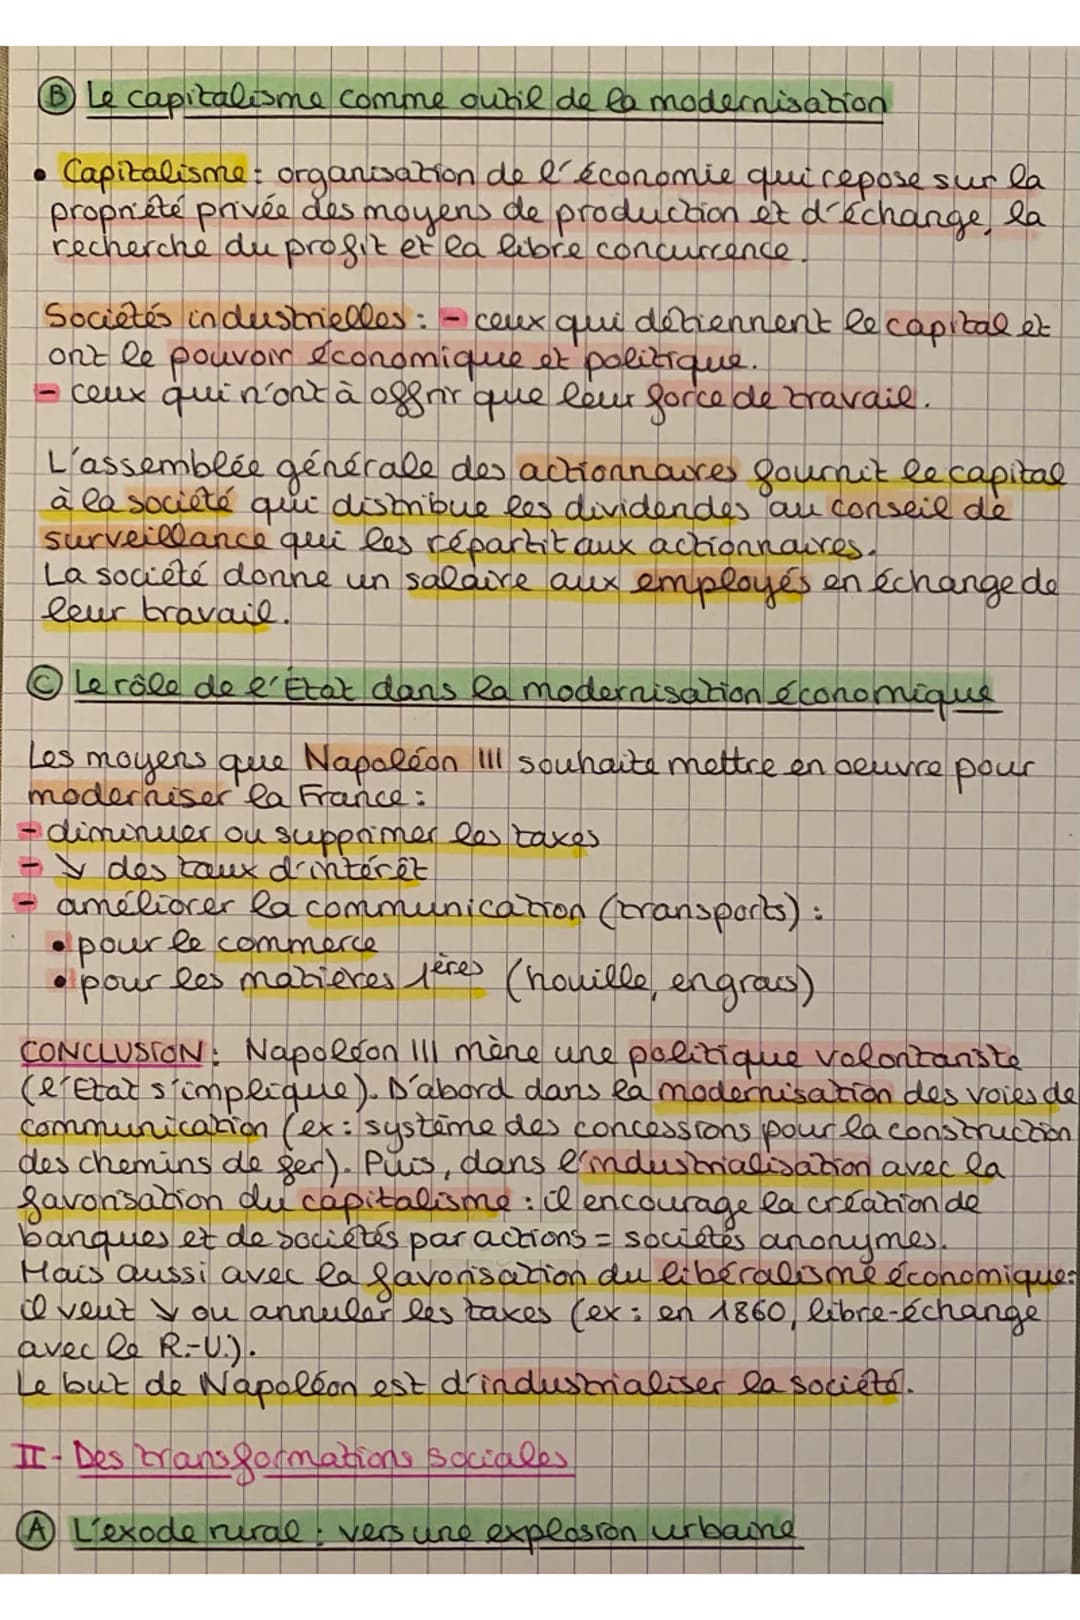 B Le capitalisme comme outil de la modernisation
• Capitalisme : organisation de l'économie qui repose sur la
propriété privée des moyens de production et d'échange, la
recherche du profit et la libre concurrence.
Sociétés industrielles : - ceux qui détiennent le capital et
ont le pouvoir économique et politique.
- ceux qui n'ont à offrir que leur force de travail.
L'assemblée générale des actionnaires fournit le capital
à la société qui distribue les dividendes au conseil de
surveillance qui les répartit aux actionnaires.
La société donne un salaire aux employés en échange de
leur travail.
C Le rôle de l'État dans la modernisation économique
Les moyens que Napoléon III souhaite mettre en oeuvre pour
moderniser la France :
- diminuer ou supprimer les taxes
- ↘ des taux d'intérêt
- améliorer la communication (transports) :
• pour le commerce
• pour les matières 1ères (houille, engrais)
CONCLUSION : Napoléon III mène une politique volontariste
(l'Etat s'implique). D'abord dans la modernisation des voies de
communication (ex : système des concessions pour la construction
des chemins de fer). Puis, dans l'industrialisation avec la
favorisation du capitalisme : il encourage la création de
banques et de sociétés par actions = sociétés anonymes.
Mais aussi avec la favorisation du libéralisme économique :
il veut ↘ ou annuler les taxes (ex : en 1860, libre-échange
avec le R.-U.).
Le but de Napoléon est d'industrialiser la société.
II - Des transformations sociales
A L'exode rural : vers une explosion urbaine